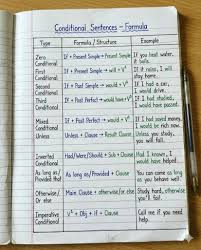 Conditional Sentences – Formula
Type Formula / Structure Example
Zero Conditional If + Present Simple → Present Simple If you heat water, it boils.
First Conditional If + Present Simple → will + V¹ If it rains, I will stay home.
Second Conditional If + Past Simple → would + V¹ If I had a car, I would drive.
Third Conditional If + Past Perfect → would have + V³ If I had studied, I would have passed.
Mixed Conditional If + Past Perfect → would + V¹ If I had saved money, I would be rich now.
Unless Conditional Unless + Clause → Result Clause Unless you study, you will fail.
Inverted Conditional Had/Were/Should + Sub + Clause Had I known, I would have helped.
As long as/ Provided that As long as/Provided + Clause You can come as long as you behave well.
Otherwise/ Or else Main Clause + otherwise/or else Study hard, otherwise you'll fail.
Imperative Conditional V¹ + Obj + if + Clause Call me if you need help.